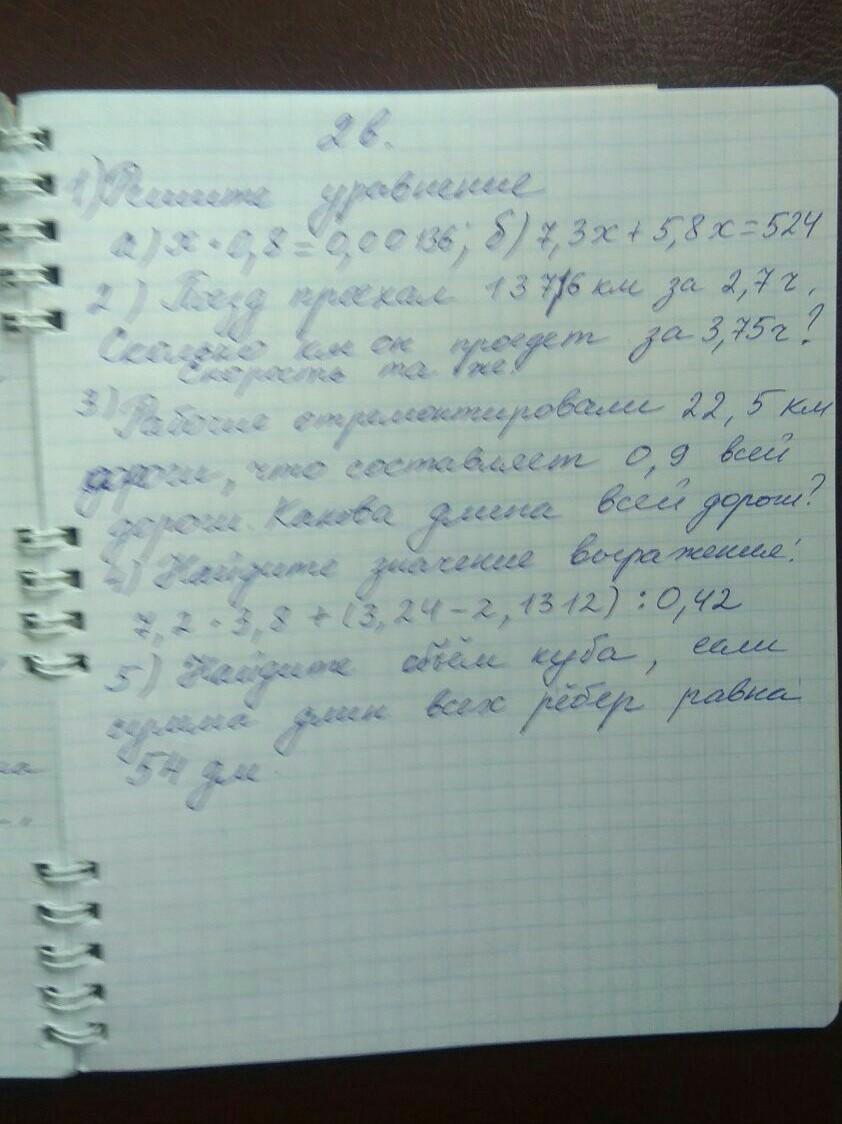 2в.
1) Решите уравнение
а) x·0,8=0,00136; б) 7,3x+5,8x=524
2) Поезд проехал 137,6 км за 2,7ч.
Сколько км он проедет за 3,75ч?
Скорость та же.
3) Рабочие отремонтировали 22,5 км
дороги, что составляет 0,9 всей
дороги. Какова длина всей дороги?
4) Найдите значение выражения:
7,2·3,8+(3,24-2,1312):0,42
5) Найдите объём куба, если
сумма длин всех рёбер равна
54 дм